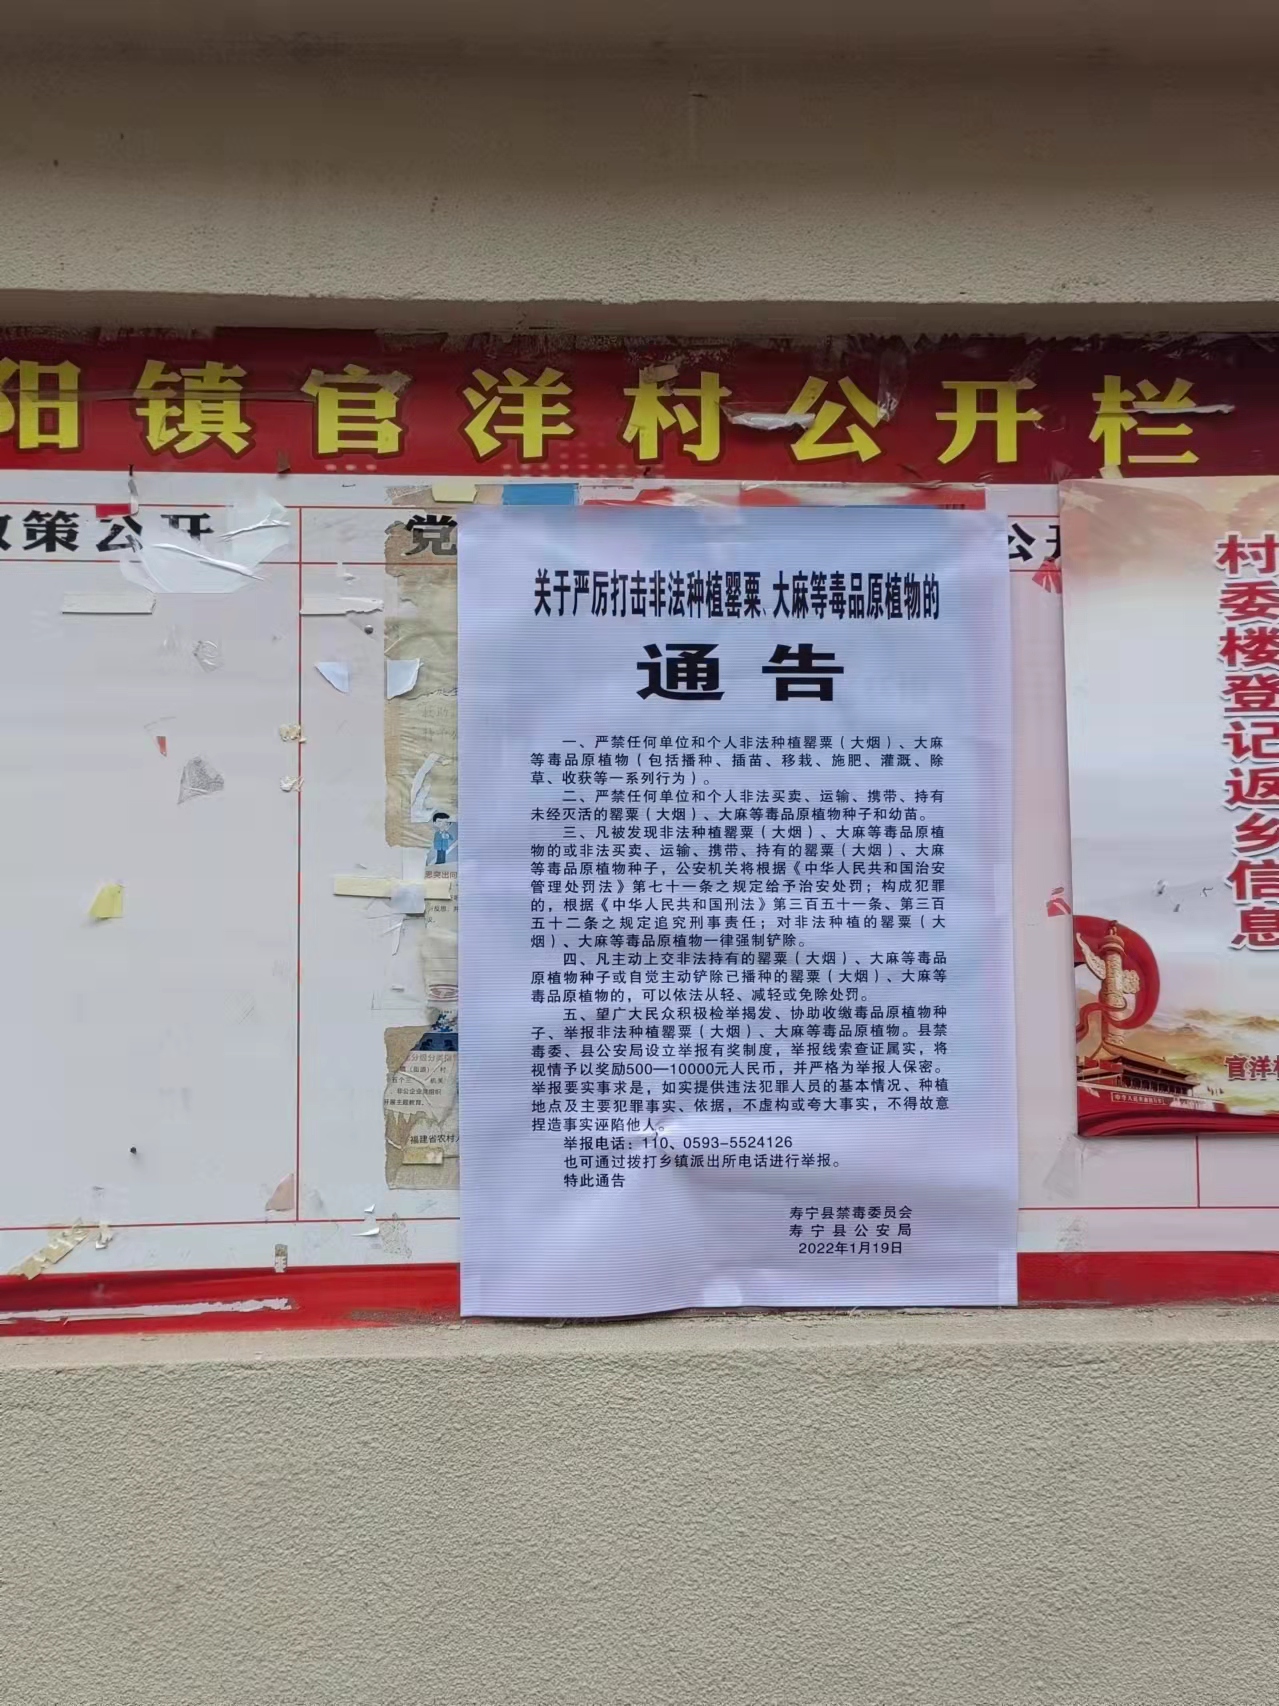 阳镇官洋村公开栏
政策公开
党
公开
关于严厉打击非法种植罂粟、大麻等毒品原植物的
通告
一、严禁任何单位和个人非法种植罂粟（大烟）、大麻
等毒品原植物（包括播种、插苗、移栽、施肥、灌溉、除
草、收获等一系列行为）。
二、严禁任何单位和个人非法买卖、运输、携带、持有
未经灭活的罂粟（大烟）、大麻等毒品原植物种子和幼苗。
三、凡被发现非法种植罂粟（大烟）、大麻等毒品原植
物的或非法买卖、运输、携带、持有的罂粟（大烟）、大麻
等毒品原植物种子，公安机关将根据《中华人民共和国治安
管理处罚法》第七十一条之规定给予治安处罚；构成犯罪
的，根据《中华人民共和国刑法》第三百五十一条、第三百
五十二条之规定追究刑事责任；对非法种植的罂粟（大
烟）、大麻等毒品原植物一律强制铲除。
四、凡主动上交非法持有的罂粟（大烟）、大麻等毒品
原植物种子或自觉主动铲除已播种的罂粟（大烟）、大麻等
毒品原植物的，可以依法从轻、减轻或免除处罚。
五、望广大民众积极检举揭发、协助收缴毒品原植物种
子、举报非法种植罂粟（大烟）、大麻等毒品原植物。县禁
毒委、县公安局设立举报有奖制度，举报线索查证属实，将
视情予以奖励500—10000元人民币，并严格为举报人保密。
举报要实事求是，如实提供违法犯罪人员的基本情况、种植
地点及主要犯罪事实、依据，不虚构或夸大事实，不得故意
捏造事实诬陷他人。
举报电话：110、0593-5524126
也可通过拨打乡镇派出所电话进行举报。
特此通告
寿宁县禁毒委员会
寿宁县公安局
2022年1月19日
村委楼登记返乡信息
官洋村
福建省农村
开展主题教育。